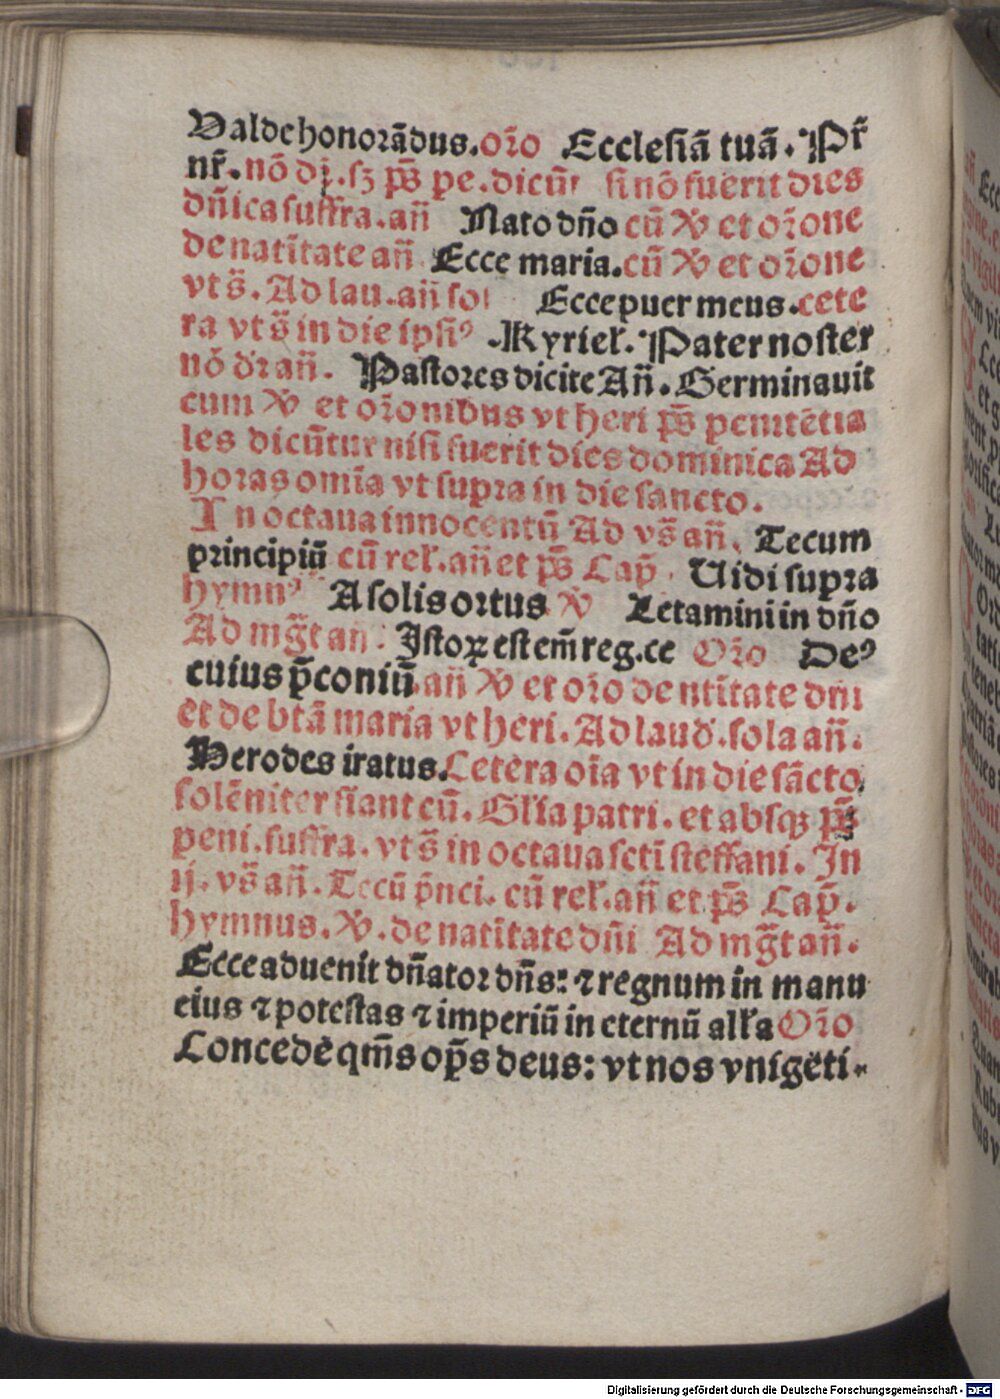 Valde honorādus. oro Ecclesiā tuā. Pr̄
nr̄. nō dꝫ. sꝫ p̄s pe. dicūt si nō fuerit dies
dn̄ica suffra. an̄ Nato dn̄o cū ℣ et orone
de natītate an̄ Ecce maria. cū ℣ et orone
vt s̄. Ad lau. an̄ sol Ecce puer meus. cete
ra vt s̄ in die ipsiꝰ. Kyriel. Pater noster
nō dr an̄. Pastores dicite An̄. Germinauit
cum ℣ et oronibus vt heri p̄s penitētia
les dicūtur nisi fuerit dies dominica Ad
horas omīa vt supra in die sancto.
In octaua innocentū Ad vs̄ an̄. Tecum
principiū cū rel. an̄ et p̄s Cap̄. Uidi supra
hymnꝰ A solis ortus ℣ Letamini in dn̄o
Ad mg̅t an̄. Istoꝝ est em̄ reg. ce Oro Deꝰ
cuius p̄coniū. an̄ ℣ et oro de ntītate dn̄i
et de btā maria vt heri. Ad laud. sola an̄.
Herodes iratus. Cetera oīa vt in die sācto
solēniter fiant cū. Glīa patri. et absqꝫ p̄s
peni. suffra. vt s̄ in octaua sctī steffani. In
ij. vs̄ an̄. Tecū p̄nci. cū rel. an̄ et p̄s Cap̄.
hymnus. ℣. de natītate dn̄i Ad mg̅t an̄.
Ecce aduenit dn̄ator dn̄s: ⁊ regnum in manu
eius ⁊ potestas ⁊ imperiū in eternū alla Oro
Concede qm̄s op̄s deus: vt nos vnigēti-
Digitalisierung gefördert durch die Deutsche Forschungsgemeinschaft - DFG